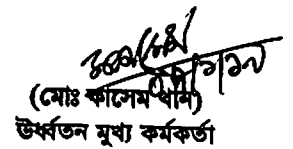 (মোঃ কাসেম খান)
উর্ধ্বতন মুখ্য কর্মকর্তা